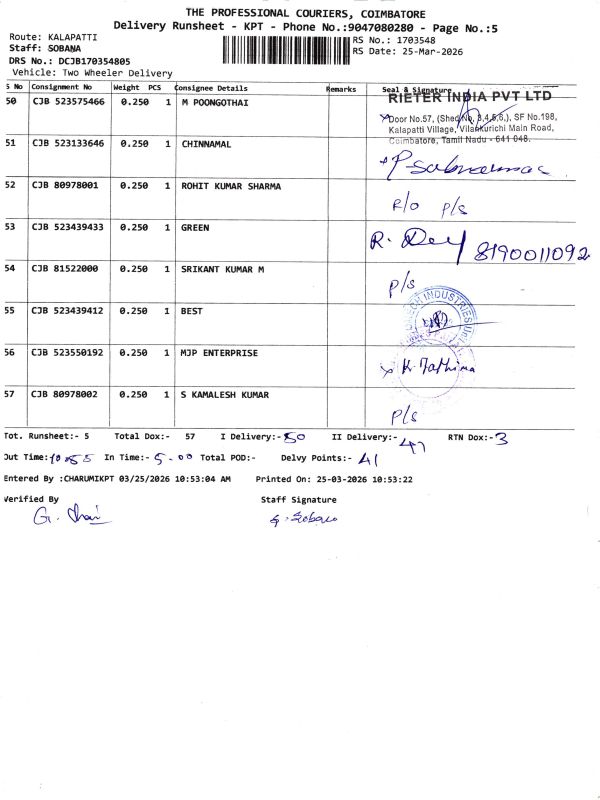 THE PROFESSIONAL COURIERS, COIMBATORE
Delivery Runsheet - KPT - Phone No.:9047080280 - Page No.:5
Route: KALAPATTI
Staff: SOBANA
DRS No.: DCJB170354805
Vehicle: Two Wheeler Delivery
RS No.: 1703548
RS Date: 25-Mar-2026
S No Consignment No Weight PCS Consignee Details Remarks Seal & Signature
50 CJB 523575466 0.250 1 M POONGOTHAI
RIETER INDIA PVT LTD
Door No.57, (Shed No. 3,4,5,6,), SF No.198,
Kalapatti Village, Vilankurichi Main Road,
Coimbatore, Tamil Nadu - 641 048.
51 CJB 523133646 0.250 1 CHINNAMAL
52 CJB 80978001 0.250 1 ROHIT KUMAR SHARMA R/O P/S
53 CJB 523439433 0.250 1 GREEN 8190011092
54 CJB 81522000 0.250 1 SRIKANT KUMAR M P/S
55 CJB 523439412 0.250 1 BEST
56 CJB 523550192 0.250 1 MJP ENTERPRISE
57 CJB 80978002 0.250 1 S KAMALESH KUMAR P/S
Tot. Runsheet:- 5 Total Dox:- 57 I Delivery:- 50 II Delivery:- 47 RTN Dox:- 3
Out Time: 10.55 In Time:- 5.00 Total POD:- Delvy Points:- 41
Entered By :CHARUMIKPT 03/25/2026 10:53:04 AM Printed On: 25-03-2026 10:53:22
Verified By Staff Signature